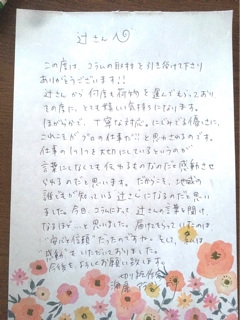 辻さんへ
この度は、コラムの取材を引き受けて下さり
ありがとうございます!!
辻さんから何度も荷物を運んでもらっており
その度に、とても嬉しい気持ちになります。
ほがらかで、丁寧な対応。にじみでる優しさに、
これこそがプロの仕事だ!!と思わされるのです。
仕事の1つ1つを大切にしているというのが
言葉にしなくても伝わるものなのだと感動させ
られるのだと思います。だからこそ、地域の
誰もが知っている辻さんになるのだと思い
ました。今回、コラムによって、辻さんの言葉を聞け、
なるほど…と思いました。届けてもらっていたのは
"安心と信頼"だったのですね。そして、私は
"感動"をいただいておりました。
今後も、よろしくお願い致します。